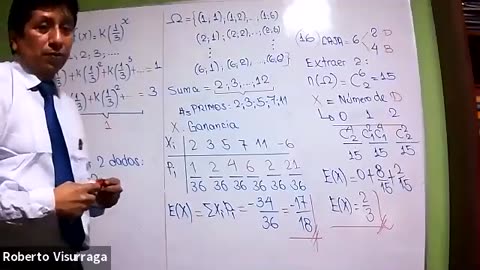 f(x) = K(1/3)^x
2, 3, ....
1/3)+K(1/3)^2+K(1/3)^3+... = 1
(1/3)^2+K(1/3)^3+... = 3
1
2 dados:
Ω = {(1,1),(1,2),...,(1,6)
(2,1);(2,2),...,(2,6)
(6,1),(6,2),...,(6,6)}
Suma = 2, 3, ..., 12
A=PRIMOS: 2; 3; 5; 7; 11
X: Ganancia
Xi | 2 3 5 7 11 -6
Pi | 1/36 2/36 4/36 6/36 2/36 21/36
E(X) = ΣXiPi = -34/36 = -17/18
(16) CAJA = 6 2 D
4 B
Extraer 2:
n(Ω) = C_2^6 = 15
X = Número de D
0 1 2
C_2^4/15 C_1^4C_1^2/15 C_2^2/15
E(X) = 0+8/15+2/15
E(X) = 2/3
Roberto Visurraga